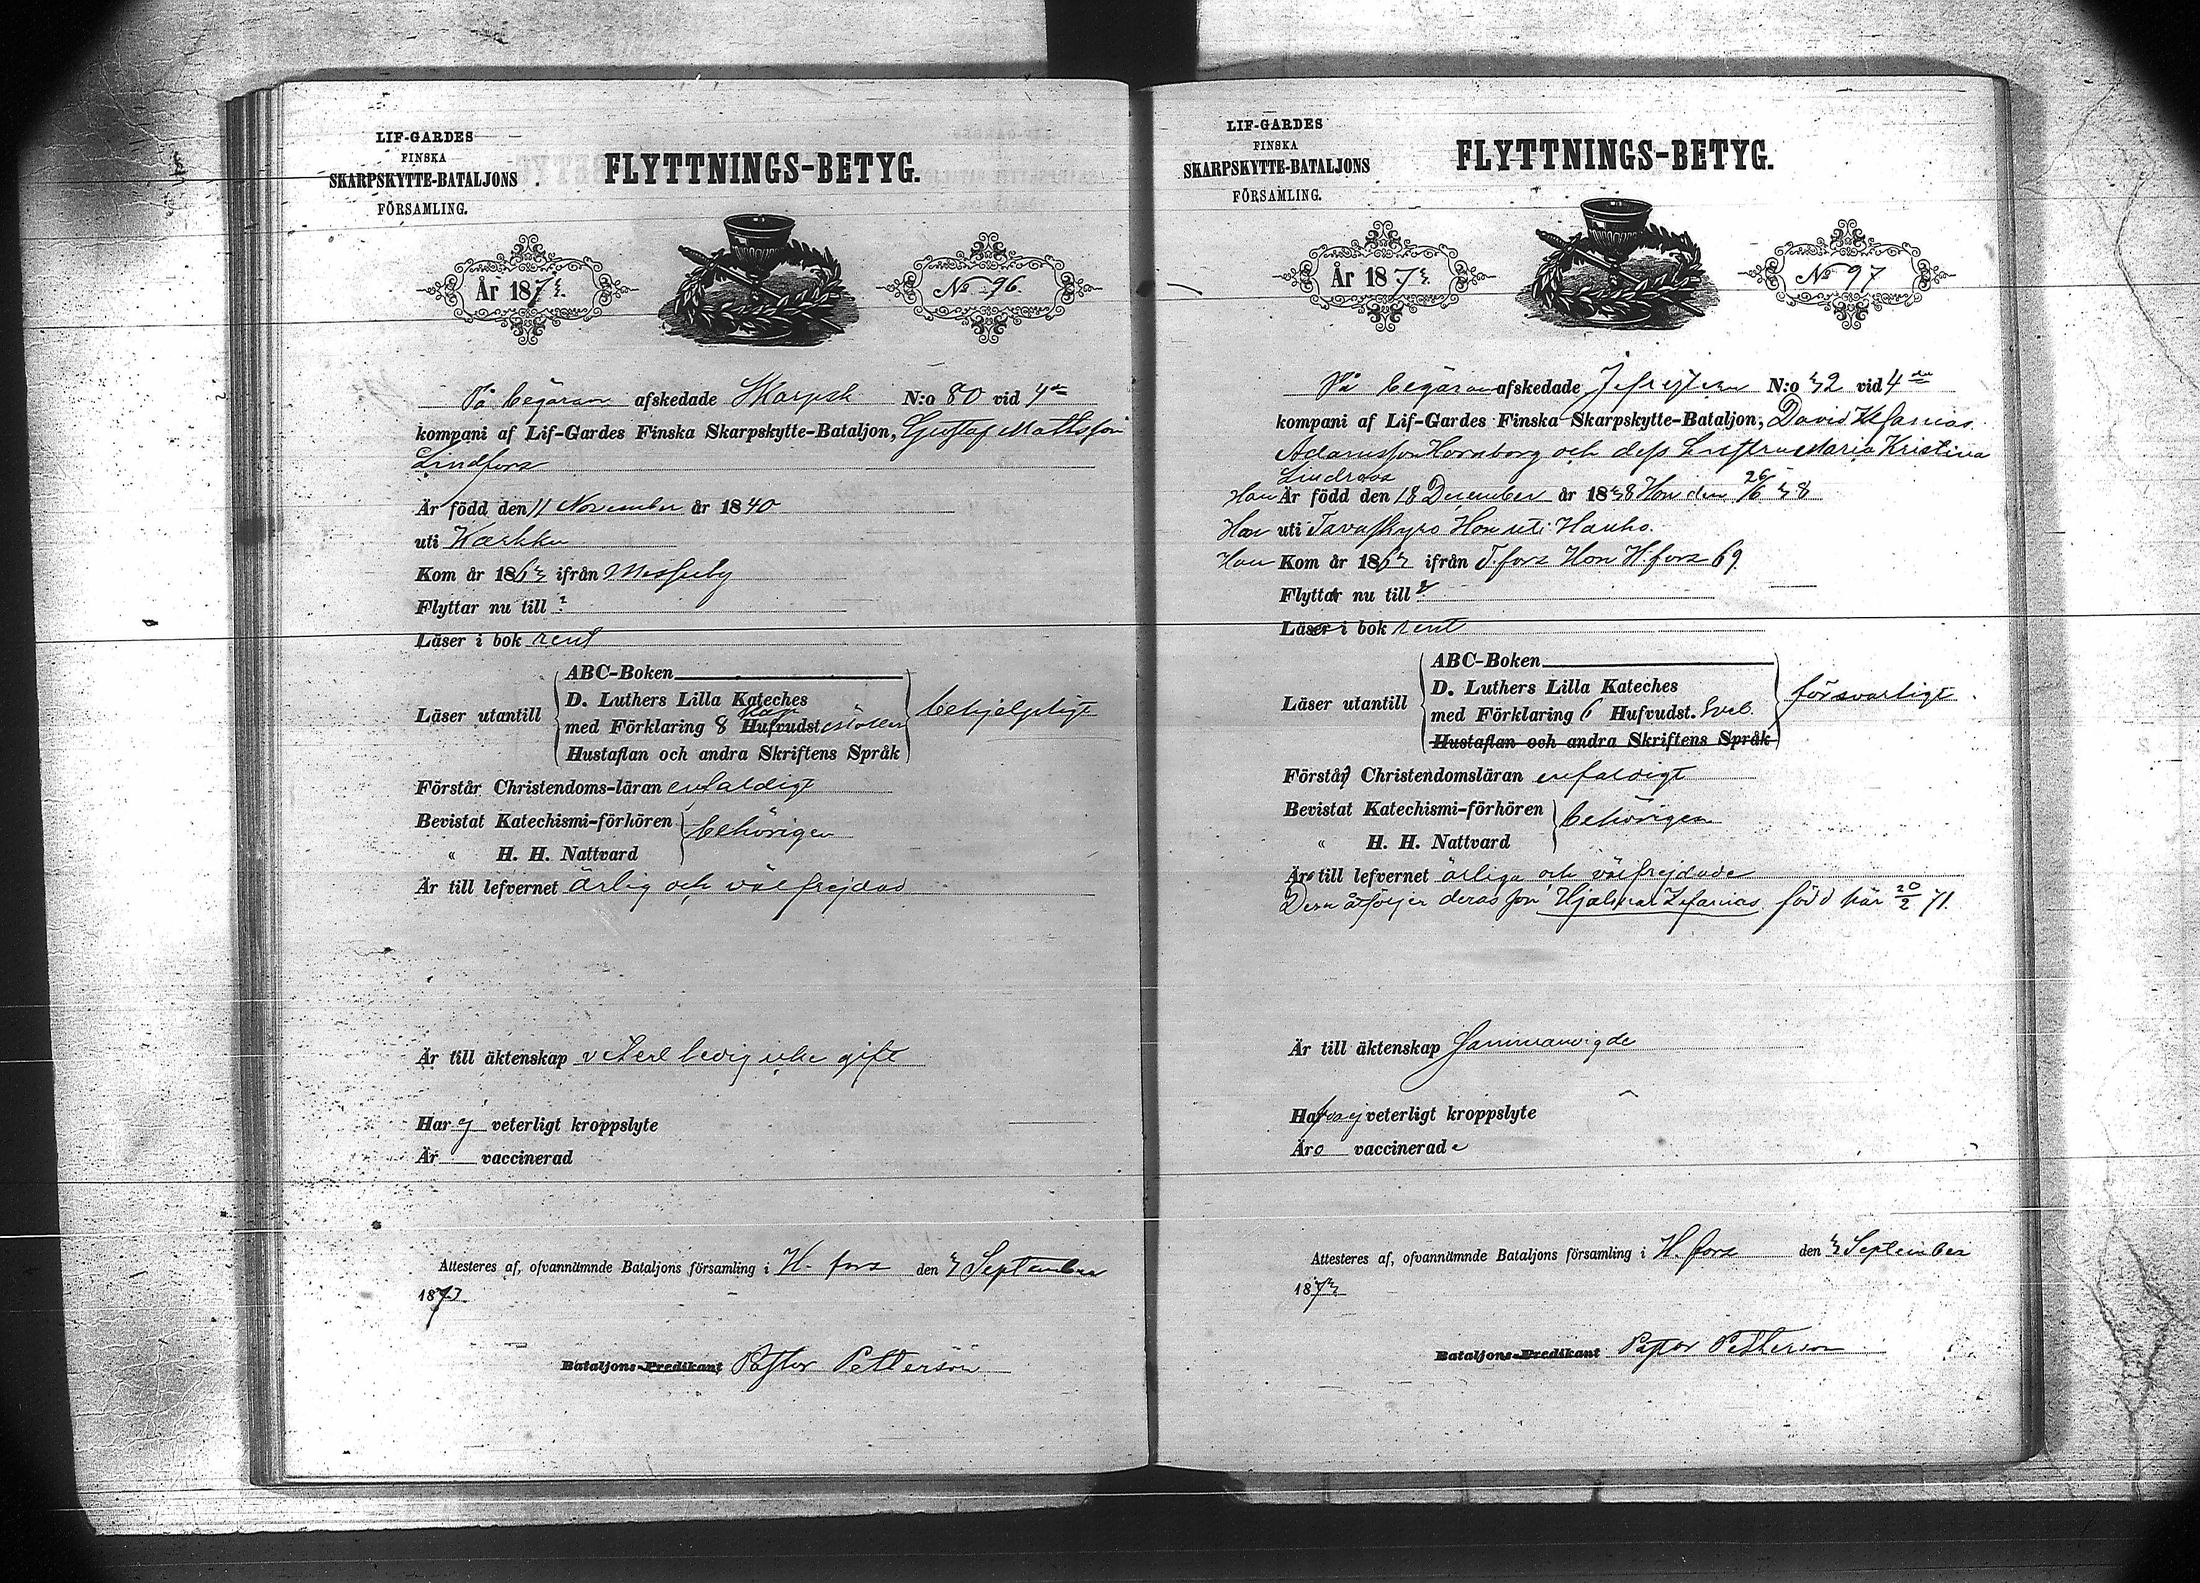 LIF-GARDES
FINSKA
SKARPSKYTTE-BATALJONS
FÖRSAMLING.
FLYTTNINGS-BETYG.
År 1873.
No 96.
På begäran afskedade Skarpsk. N:o 80 vid 4de
kompani af Lif-Gardes Finska Skarpskytte-Bataljon, Gustaf Mattsson
Lindfors
Är född den 11 November år 1840
uti Karkku
Kom år 1863 ifrån Messuby
Flyttar nu till ?
Läser i bok rent
ABC-Boken
D. Luthers Lilla Kateches
Läser utantill
med Förklaring 8 Hufvudst
Hustaflan och andra Skriftens Språk
behjelpligt
Förstår Christendoms-läran enfaldigt
Bevistat Katechismi-förhören
" H. H. Nattvard
behörigen
Är till lefvernet ärlig och välfrejdad
Är till äktenskap veterl ledig icke gift
Har ej veterligt kroppslyte
Är vaccinerad
Attesteres af, ofvannämnde Bataljons församling i H. fors den 3 September
1873
Bataljons-Predikant Pastor Petterson
LIF-GARDES
FINSKA
SKARPSKYTTE-BATALJONS
FÖRSAMLING.
FLYTTNINGS-BETYG.
År 1873.
No 97
På begäran afskedade Gefrejtern N:o 32 vid 4de
kompani af Lif-Gardes Finska Skarpskytte-Bataljon, David Zefanias
Adamsson Hornborg och dess hustru Maria Kristina
Lindroos
Han Är född den 18 December år 1838 Hon den 26/6 38
Han uti Tavastkyro Hon uti Hauho.
Han Kom år 1863 ifrån T.fors Hon H.fors 69
Flytta nu till ?
Läser i bok rent
ABC-Boken
D. Luthers Lilla Kateches
Läser utantill
med Förklaring 6 Hufvudst.
Hustaflan och andra Skriftens Språk
försvarligt
Förstå Christendomsläran enfaldigt
Bevistat Katechismi-förhören
" H. H. Nattvard
behörigen
Äro till lefvernet ärliga och välfrejdade
Dem åtföljer deras son Hjalmar Zefanias född här 20/2 71.
Är till äktenskap Sammanvigde
Hafva ej veterligt kroppslyte
Äro vaccinerade
Attesteres af, ofvannämnde Bataljons församling i H. fors den 3 September
1873
Bataljons-Predikant Pastor Petterson